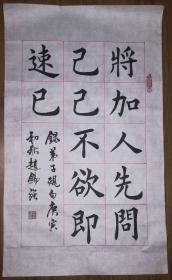 將加人先問
己己不欲即
速已
錄弟子規句庚寅
初秋趙錦璇